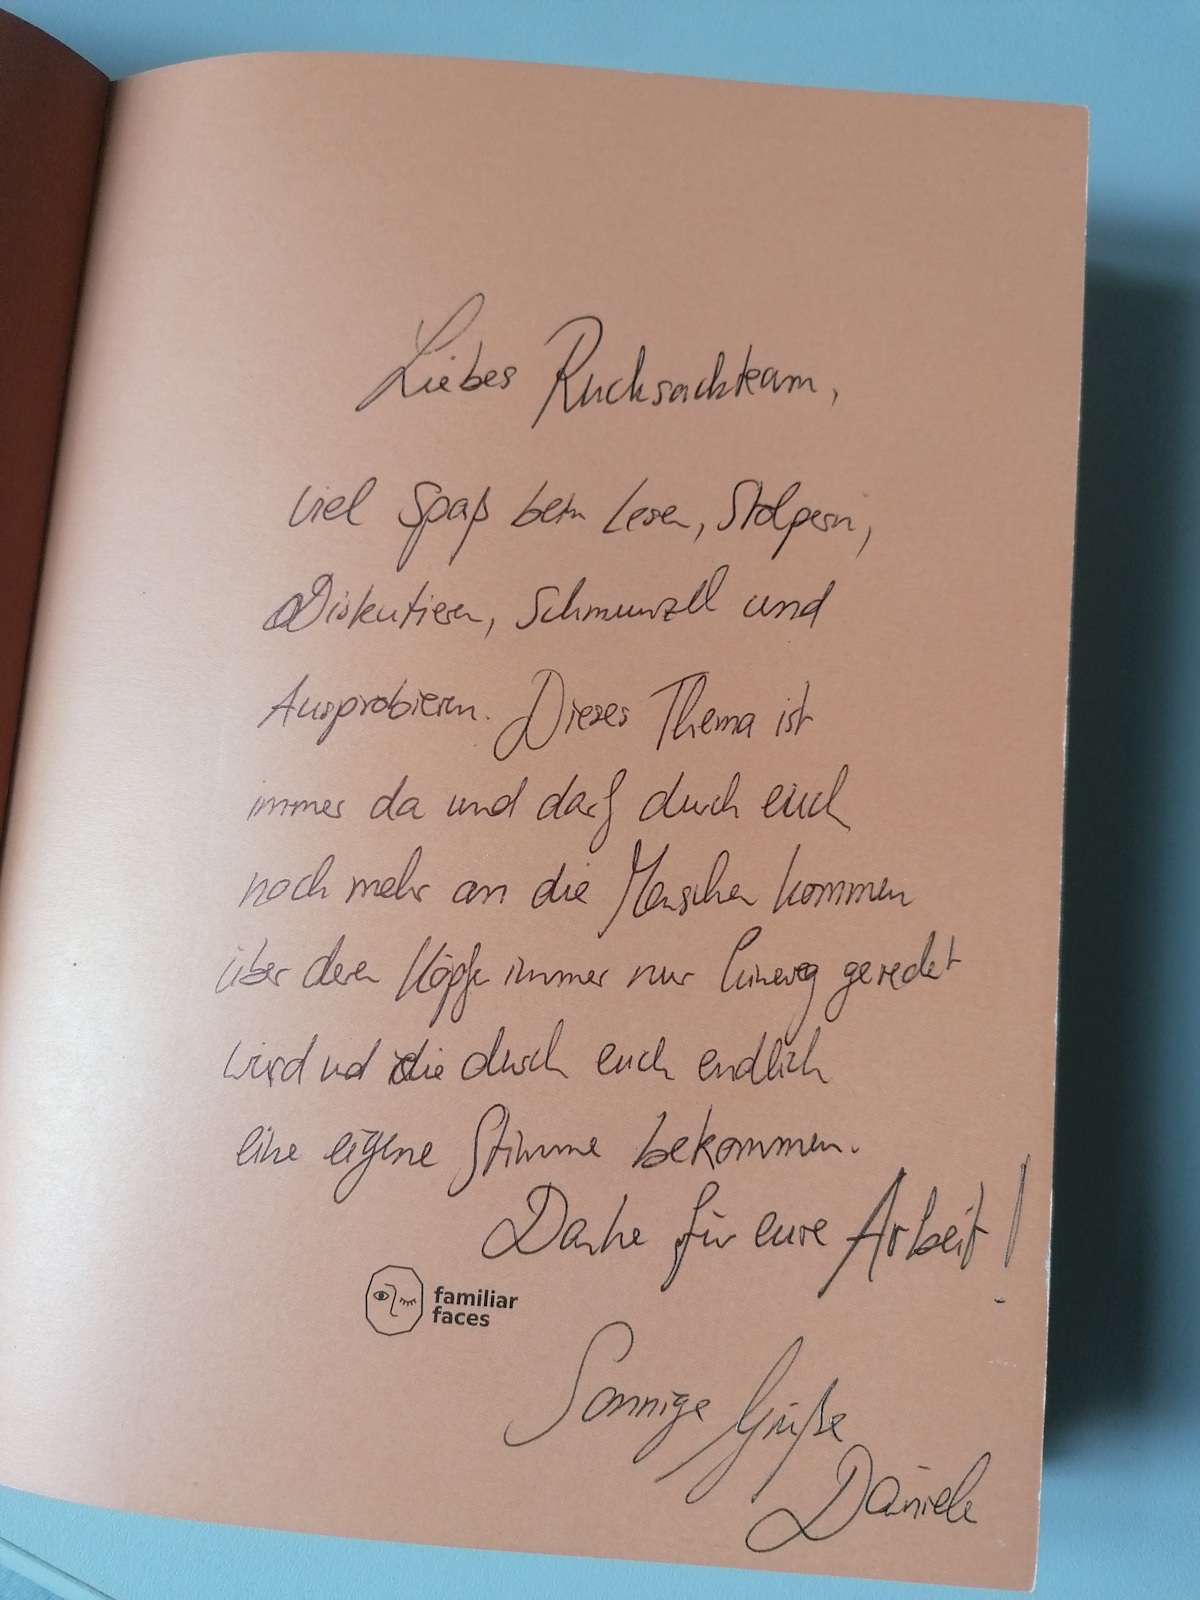 Liebes Rucksackteam,
viel Spaß beim Lesen, Stolpern,
Diskutieren, Schmunzeln und
Ausprobieren. Dieses Thema ist
immer da und darf durch euch
noch mehr an die Menschen kommen
über deren Köpfe immer nur hinweg geredet
wird und die durch euch endlich
eine eigene Stimme bekommen.
Danke für eure Arbeit!
familiar
faces
Sonnige Grüße